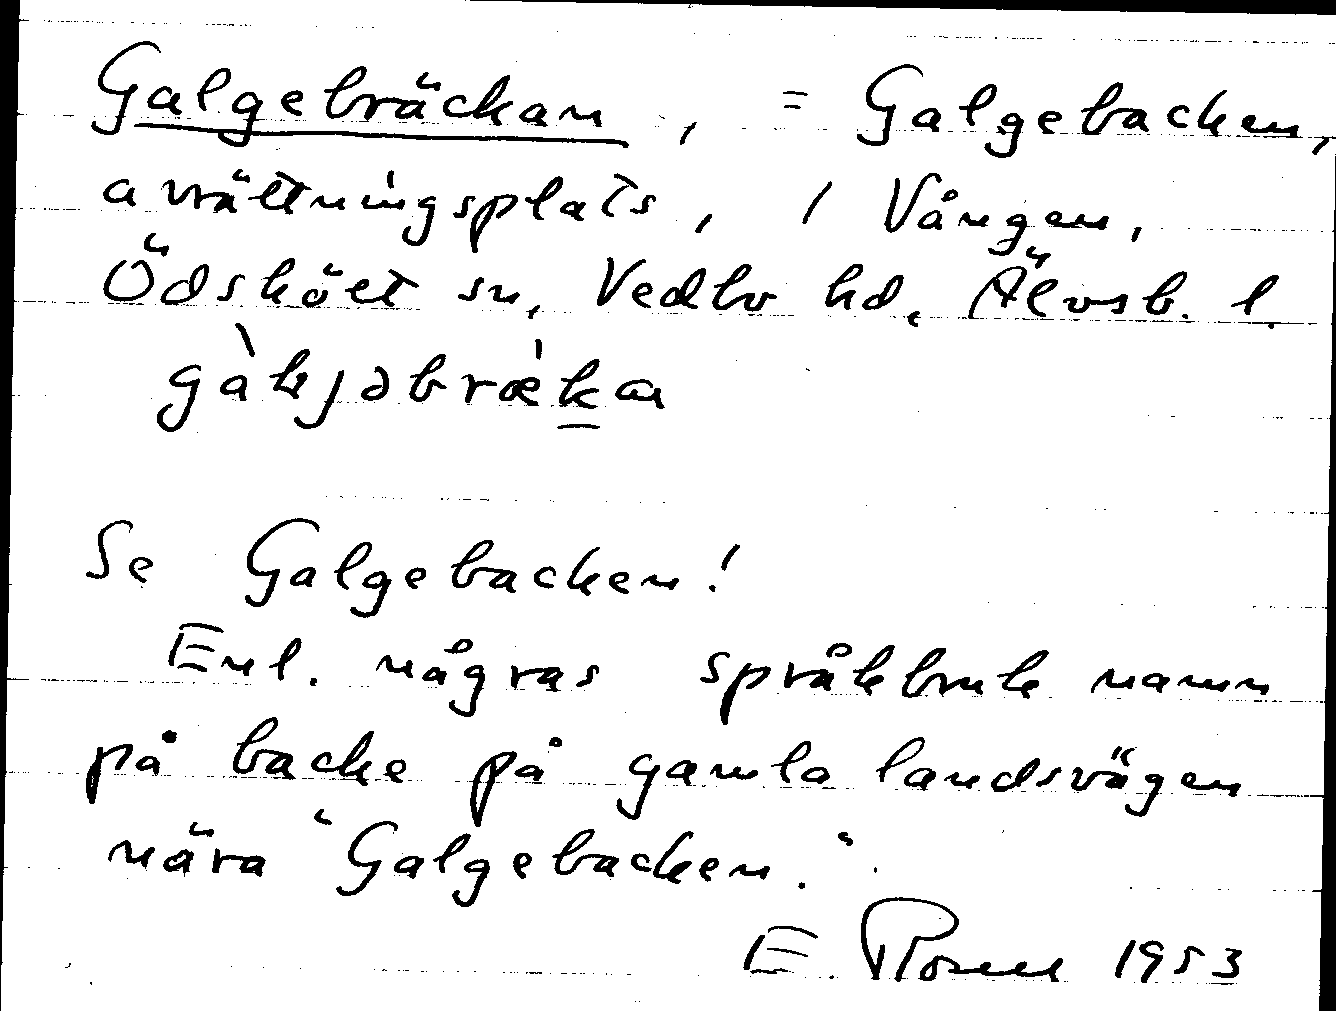 Galgebräckan, = Galgebacken,
avrättningsplats, i Vången,
Ödsköet sn, Vedbo hd, Älvsb. l.
Se Galgebacken!
Enl. någras språkbruk namn
på backe på gamla landsvägen
nära "Galgebacken."
E. 1953